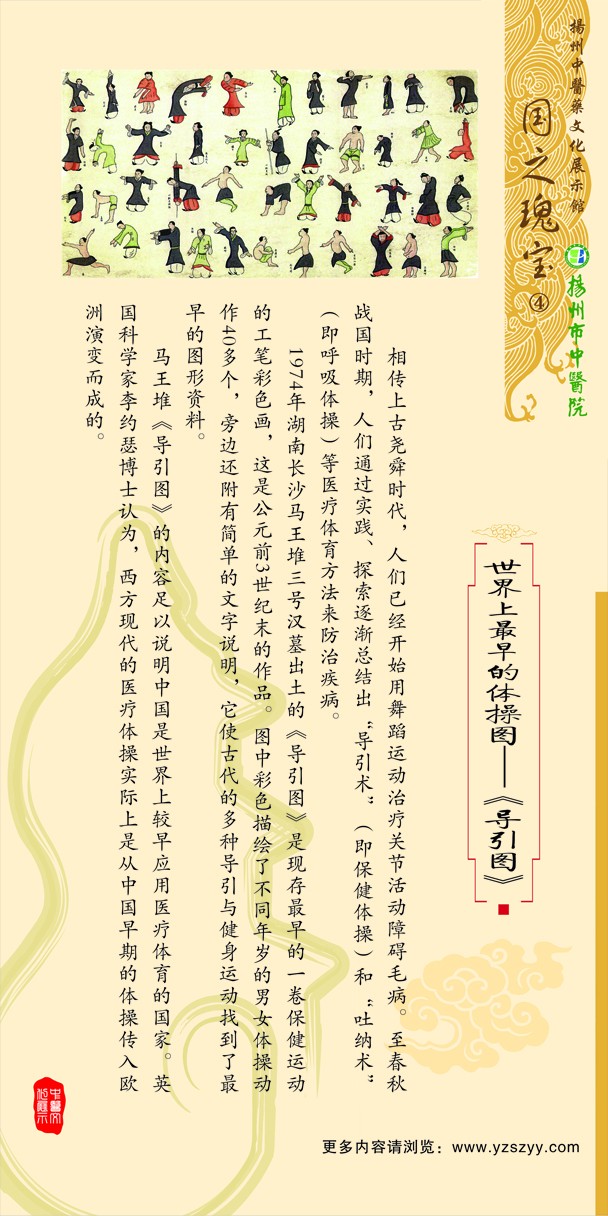 揚州中醫藥文化展示館
国之瑰宝④
揚州市中醫院
世界上最早的体操图——《导引图》
相传上古尧舜时代，人们已经开始用舞蹈运动治疗关节活动障碍毛病。至春秋
战国时期，人们通过实践、探索逐渐总结出“导引术”（即保健体操）和“吐纳术”
（即呼吸体操）等医疗体育方法来防治疾病。
1974年湖南长沙马王堆三号汉墓出土的《导引图》是现存最早的一卷保健运动
的工笔彩色画，这是公元前3世纪末的作品。图中彩色描绘了不同年岁的男女体操动
作40多个，旁边还附有简单的文字说明，它使古代的多种导引与健身运动找到了最
早的图形资料。
马王堆《导引图》的内容足以说明中国是世界上较早应用医疗体育的国家。英
国科学家李约瑟博士认为，西方现代的医疗体操实际上是从中国早期的体操传入欧
洲演变而成的。
更多内容请浏览：www.yzszyy.com